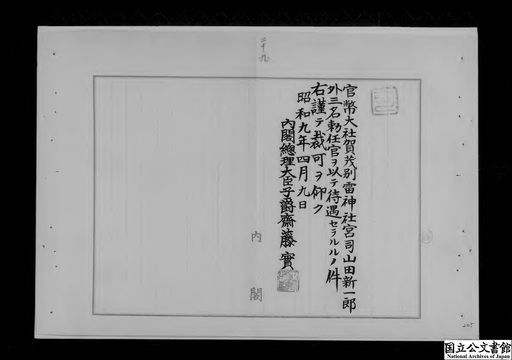 二十九
官幣大社賀茂別雷神社宮司山田新一郎
外三名勅任官ヲ以テ待遇セラルルノ件
右謹テ裁可ヲ仰ク
昭和九年四月九日
内閣總理大臣子爵齋藤實
内閣
国立公文書館
National Archives of Japan